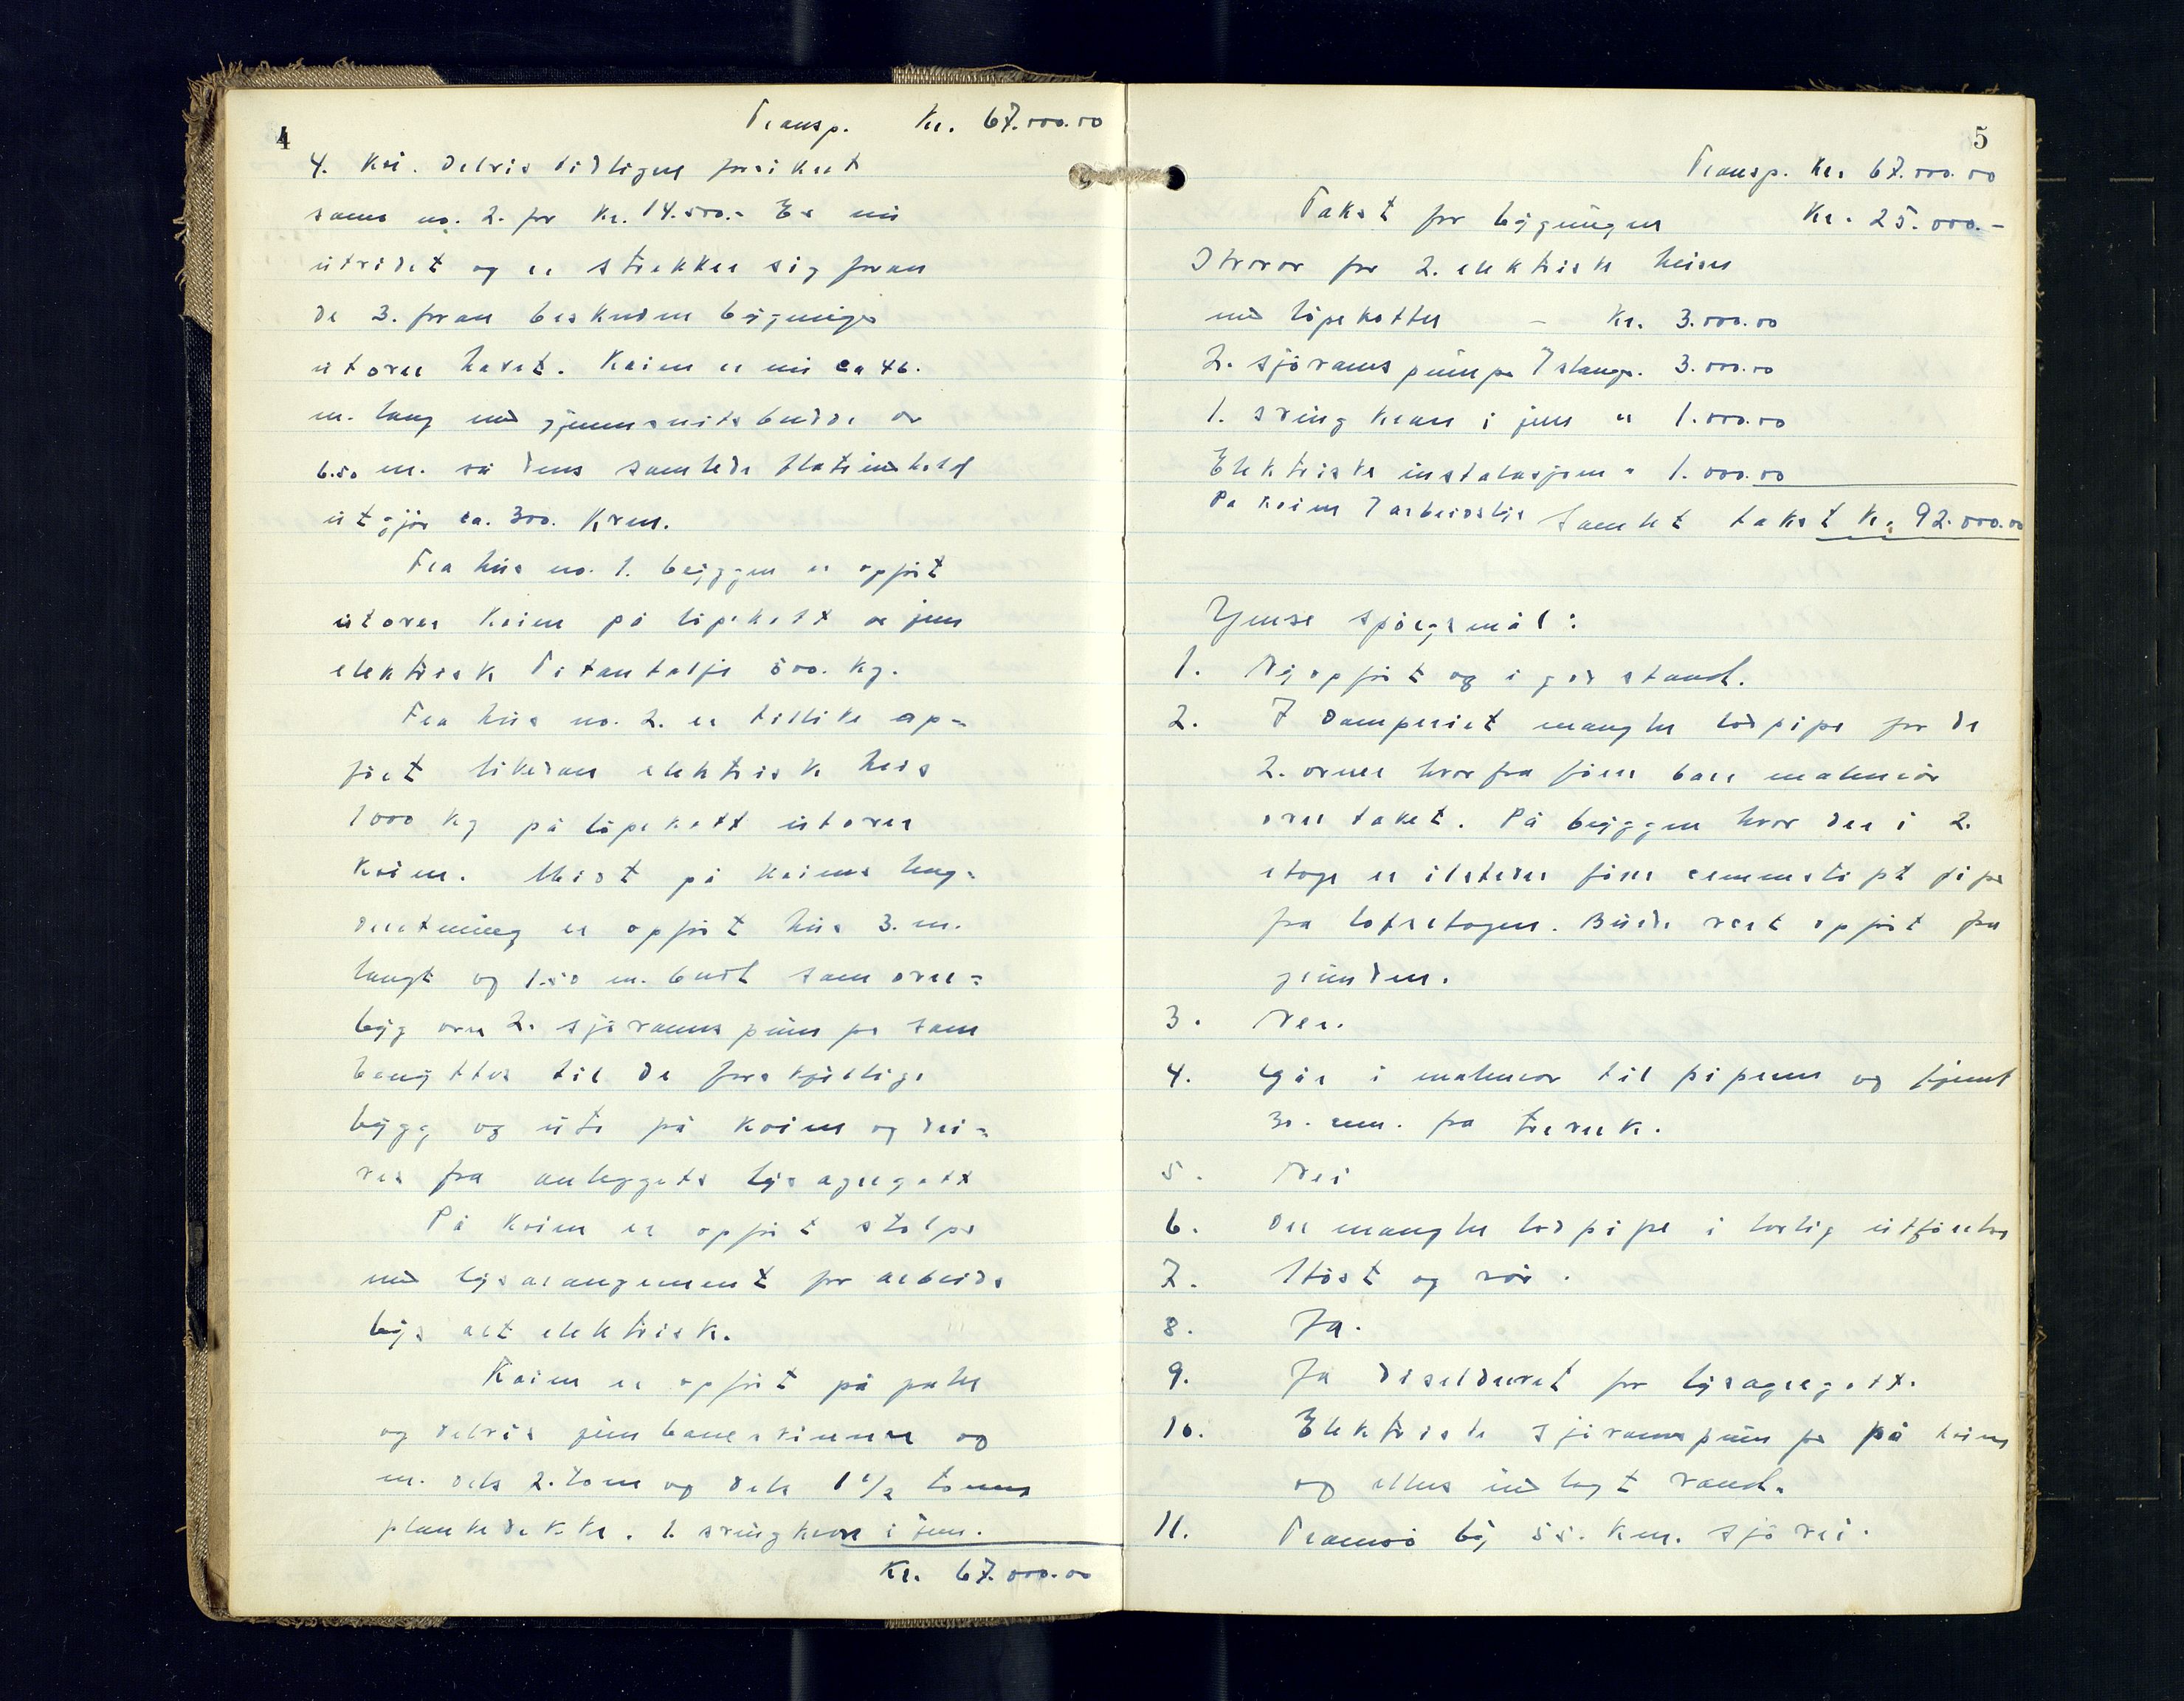 4
Transp. Kr. 67.000.00
4. Kai. Delvis tidligere forsikert
sams no. 2. for Kr. 14.500.- Er nu
utvidet og er strekker sig foran
de 3. foran beskrevne bygninger
utover havet. Kaien er nu ca 46.
m. lang med gjennsnits bredde av
6.50 m. så dens samlede flateinhold
utgjør ca. 300. Kvm.
Fra hus no. 1. bryggen er opført
utover Kaien på løpekatt av jern
elektrisk Titantalje 500. kg.
Fra hus no. 2. er tillike op-
ført likedan elektrisk heis
1000 kg på løpekatt utover
Kaien. Midt på Kaiens leng-
deretning er opført hus 3. m.
langt og 1.50 m. bredt som over-
byg over 2. sjøvanns pumper som
benyttes til de forskjellige
bygg og ute på Kaien og dri-
ves fra anleggets lysagregatt
På Kaien er opført stolpe
med lysarangement for arbeids
lys alt elektrisk.
Kaien er opført på peler
og delvis jernbaneskinner og
m. dels 2. tom og dels 1 1/2 toms
plankedekke. 1 svingkran i jern.
Kr. 67.000.00
5
Transp. Kr. 67.000.00
Takst for bygningen Kr. 25.000.-
Hvorav for 2. elektrisk heiser
med løpekatter - Kr. 3.000.00
2. sjøvanns pumper 7 slanger. 3.000.00
1. sving kran i jern " 1.000.00
Elektriske instalasjon " 1.000.00
På kaien 7 arbeidslys Samlet takst Kr. 92.000.00
Ymse spørgsmål:
1. Ny opført og i god stand.
2. I damperiet mangler lodpipe for de
2. ovner hvorfra fører bare malmrør
over taket. På bryggen hvor der i 2.
etage er ildsteder fører cementstøpt pipe
fra loftsetagen. Burde vært opført fra
grunden.
3. Nei.
4. Går i malmrør til pipene og fjernt
30. cm. fra treverk.
5. Nei
6. Der mangler lodpipe i lovlig utførelse
7. Høst og vår.
8. Ja.
9. Ja diseldrevet for lysagregatt.
10. Elektriske sjøvanns pumper på kaien
og ellers inlagt vand.
11. Tromsø by 55. km. sjøvei.